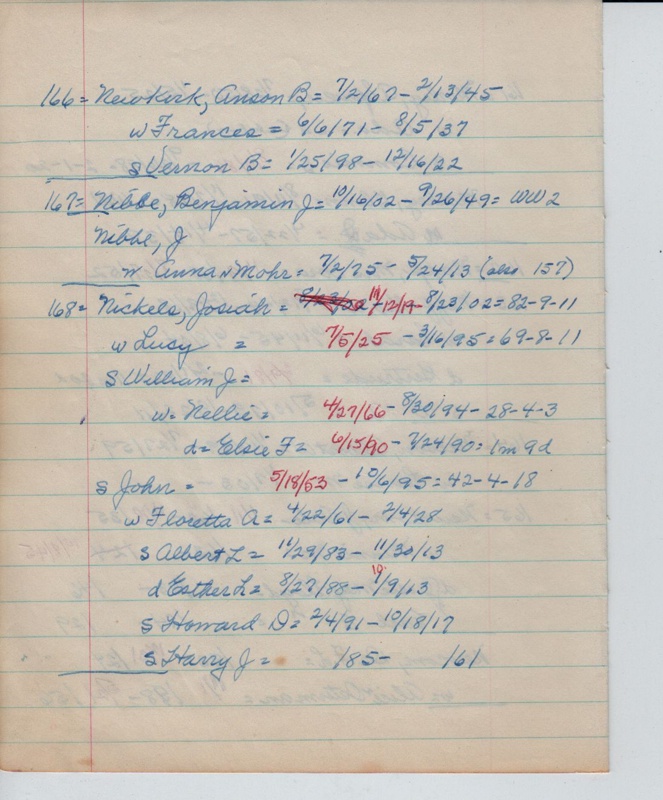 166 = Newkirk, Anson B = 7/2/67 - 2/13/45
w Frances = 6/6/71 - 8/5/37
s Vernon B = 1/25/98 - 12/16/22
167 = Nibbe, Benjamin J = 10/16/02 - 9/26/49 = WW2
Nibbe, J
w Anna Mohr = 7/2/75 - 5/24/13 (also 157)
168 = Nickels, Josiah = 11/12/19 - 8/23/02 = 82-9-11
w Lusy = 7/5/25 - 3/16/95 = 69-8-11
s William J =
w = Nellie = 4/27/66 - 8/30/94 - 28-4-3
d = Elsie F = 6/15/90 - 7/24/90 = 1m 9d
s John = 5/18/53 - 10/6/95 = 42-4-18
w Floretta A = 4/22/61 - 2/4/28
s Albert L = 11/29/83 - 11/30/13
d Esther L = 8/27/88 - /9/13
s Howard D = 2/4/91 - 10/18/17
s Harry J = /85 - /61